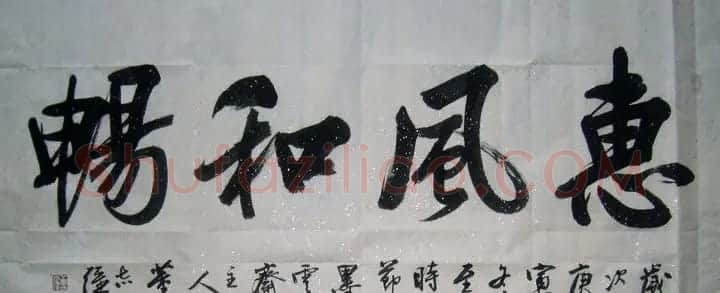 惠風和暢
歲次庚寅冬至時節墨雲齋主人董志强
Shufaziliao.COM